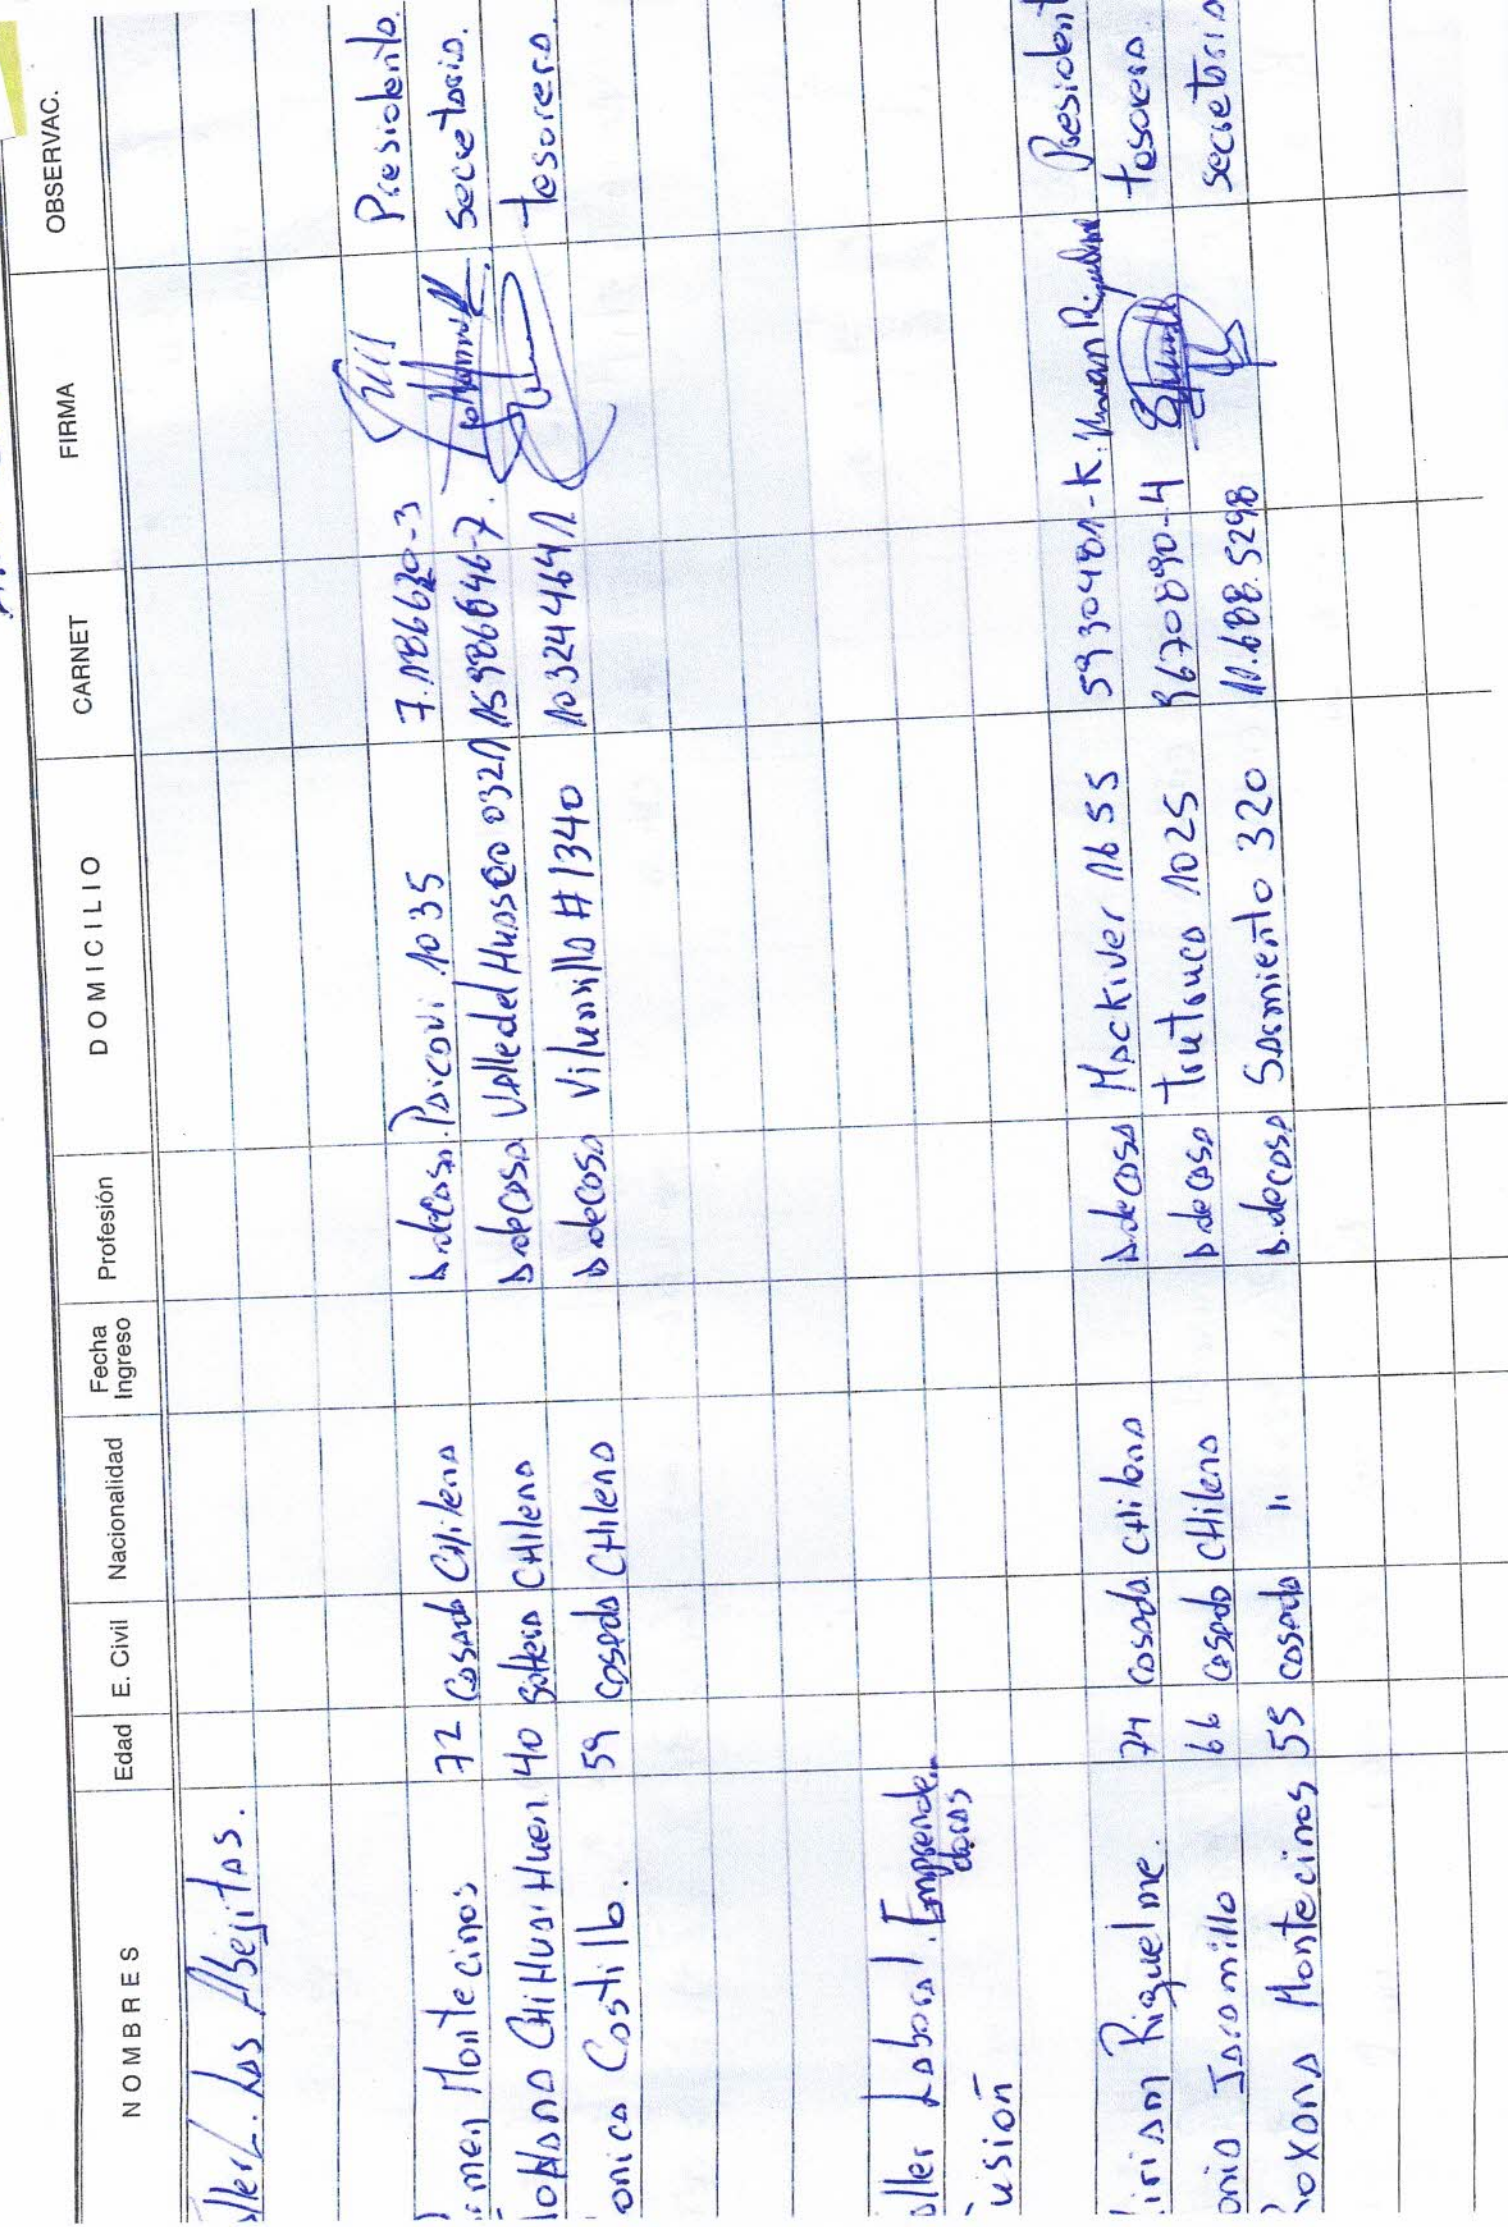 NOMBRES Edad E. Civil Nacionalidad Fecha Ingreso Profesión DOMICILIO CARNET FIRMA OBSERVAC.
ller L. Las Abejitas.
men Montecinos 72 Casada CHilena D.deCasa. Paicavi 1035 7.186620-3 Presidenta.
oHana CHiHuaiHuen. 40 Soltera CHilena D deCasa Valle del Huasco 0321 15986646-7. Secretaria.
onica Castillo. 59 Casada CHilena D deCasa Vilumilla #1340 10324464-1 tesorera.
aller Laboral. Emprende
doras
usión
iriam Riquelme. 74 Casada. CHilena D.deCasa Mackiver 1655 5930481-K. Miriam Riquelme President
onia Jaramillo 66 Casada CHilena D deCasa Trutruca 1025 8670890-4 tesorera.
oxana Montecinos 55 Casada " D.deCasa Sarmiento 320 11.688.5298 Secretaria